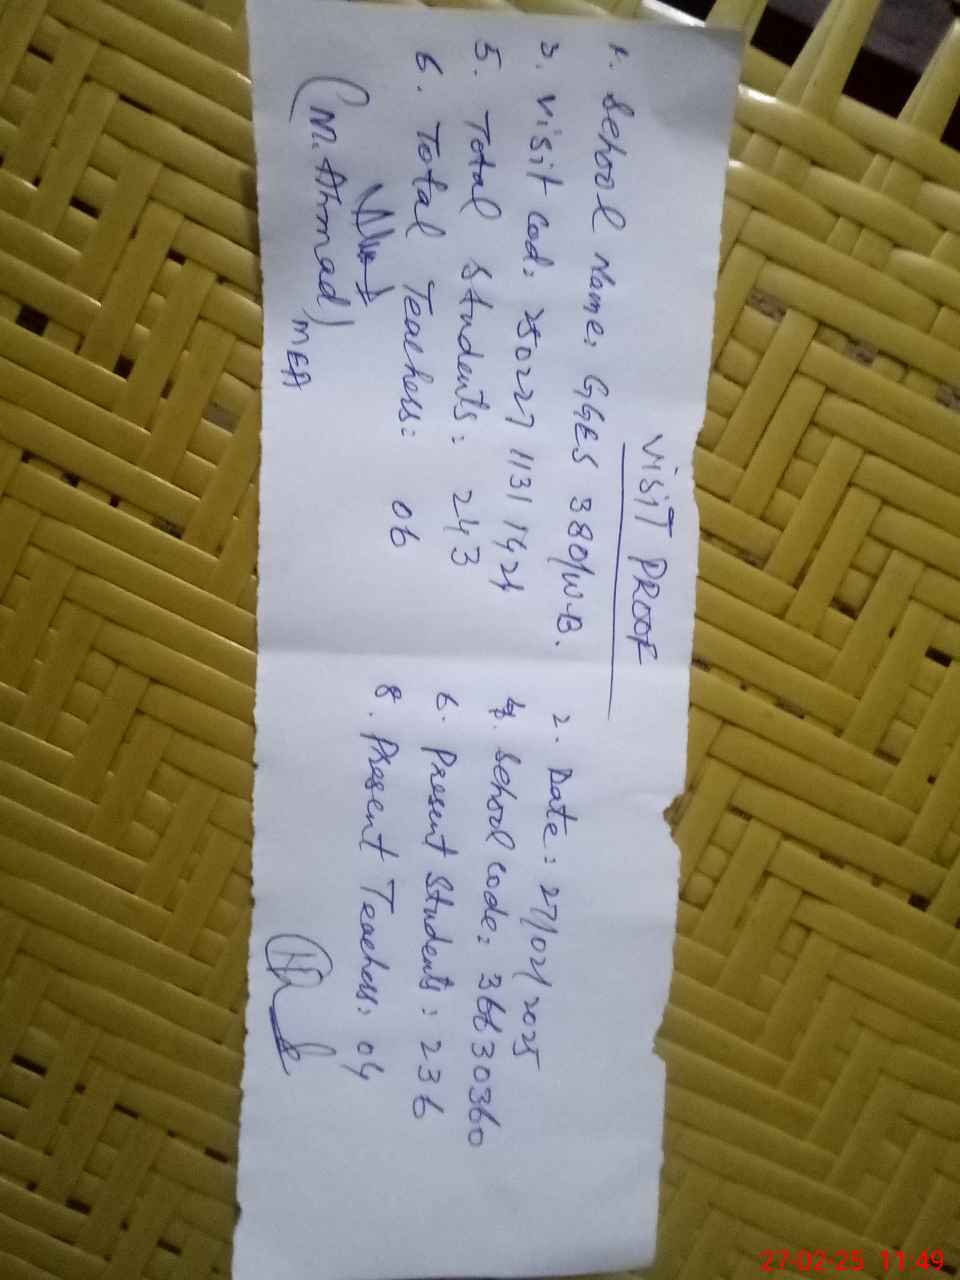 VISIT PROOF
1. School Name: GGES 380/W-B.
2. Date: 27/02/2025
3. Visit Cod: 250227 1131 1421
4. School Code: 36630360
5. Total Students: 243
6. Present Students: 236
6. Total Teachers: 06
8. Present Teachers: 04
(M. Ahmad)
MEA
27-02-25 11:49